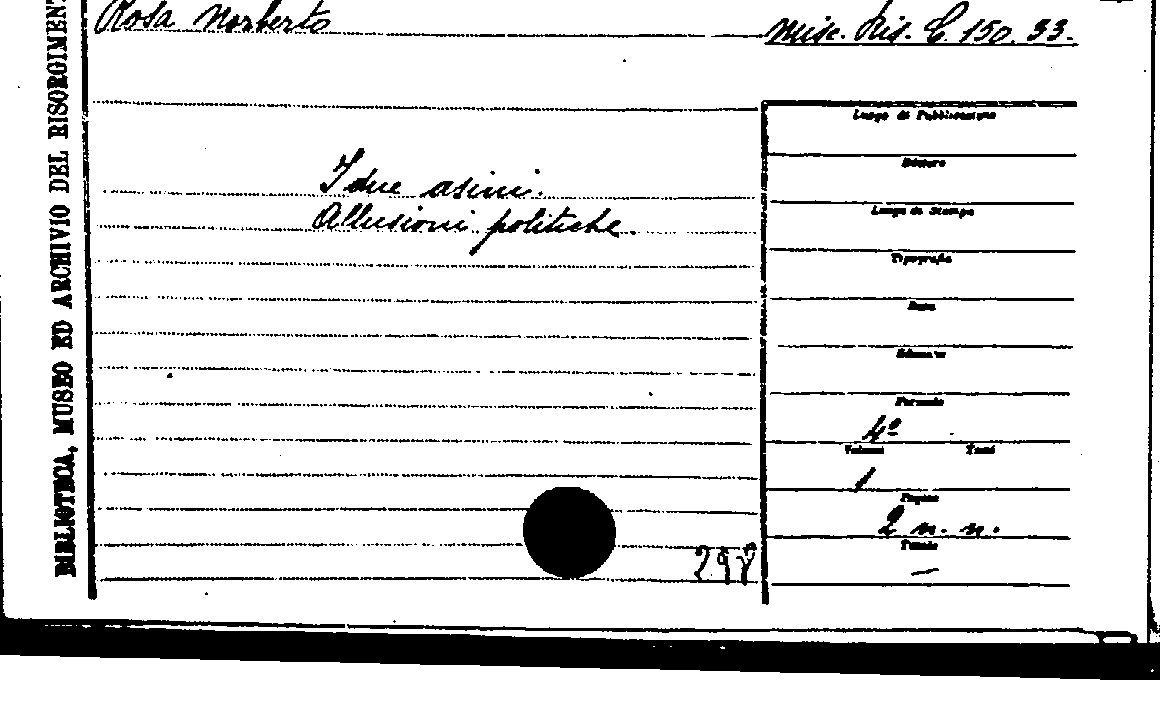 Rosa Norberto
Misc. Ris. C. 150. 33.
BIBLIOTECA, MUSEO ED ARCHIVIO DEL RISORGIMENT
I due asini.
Allusioni politiche.
298
Luogo di Pubblicazione
Editore
Luogo di Stampa
Tipografia
Data
Edizione
Formato
4º
Volumi Tomi
1
Pagine
2 n. n.
Tavole
—